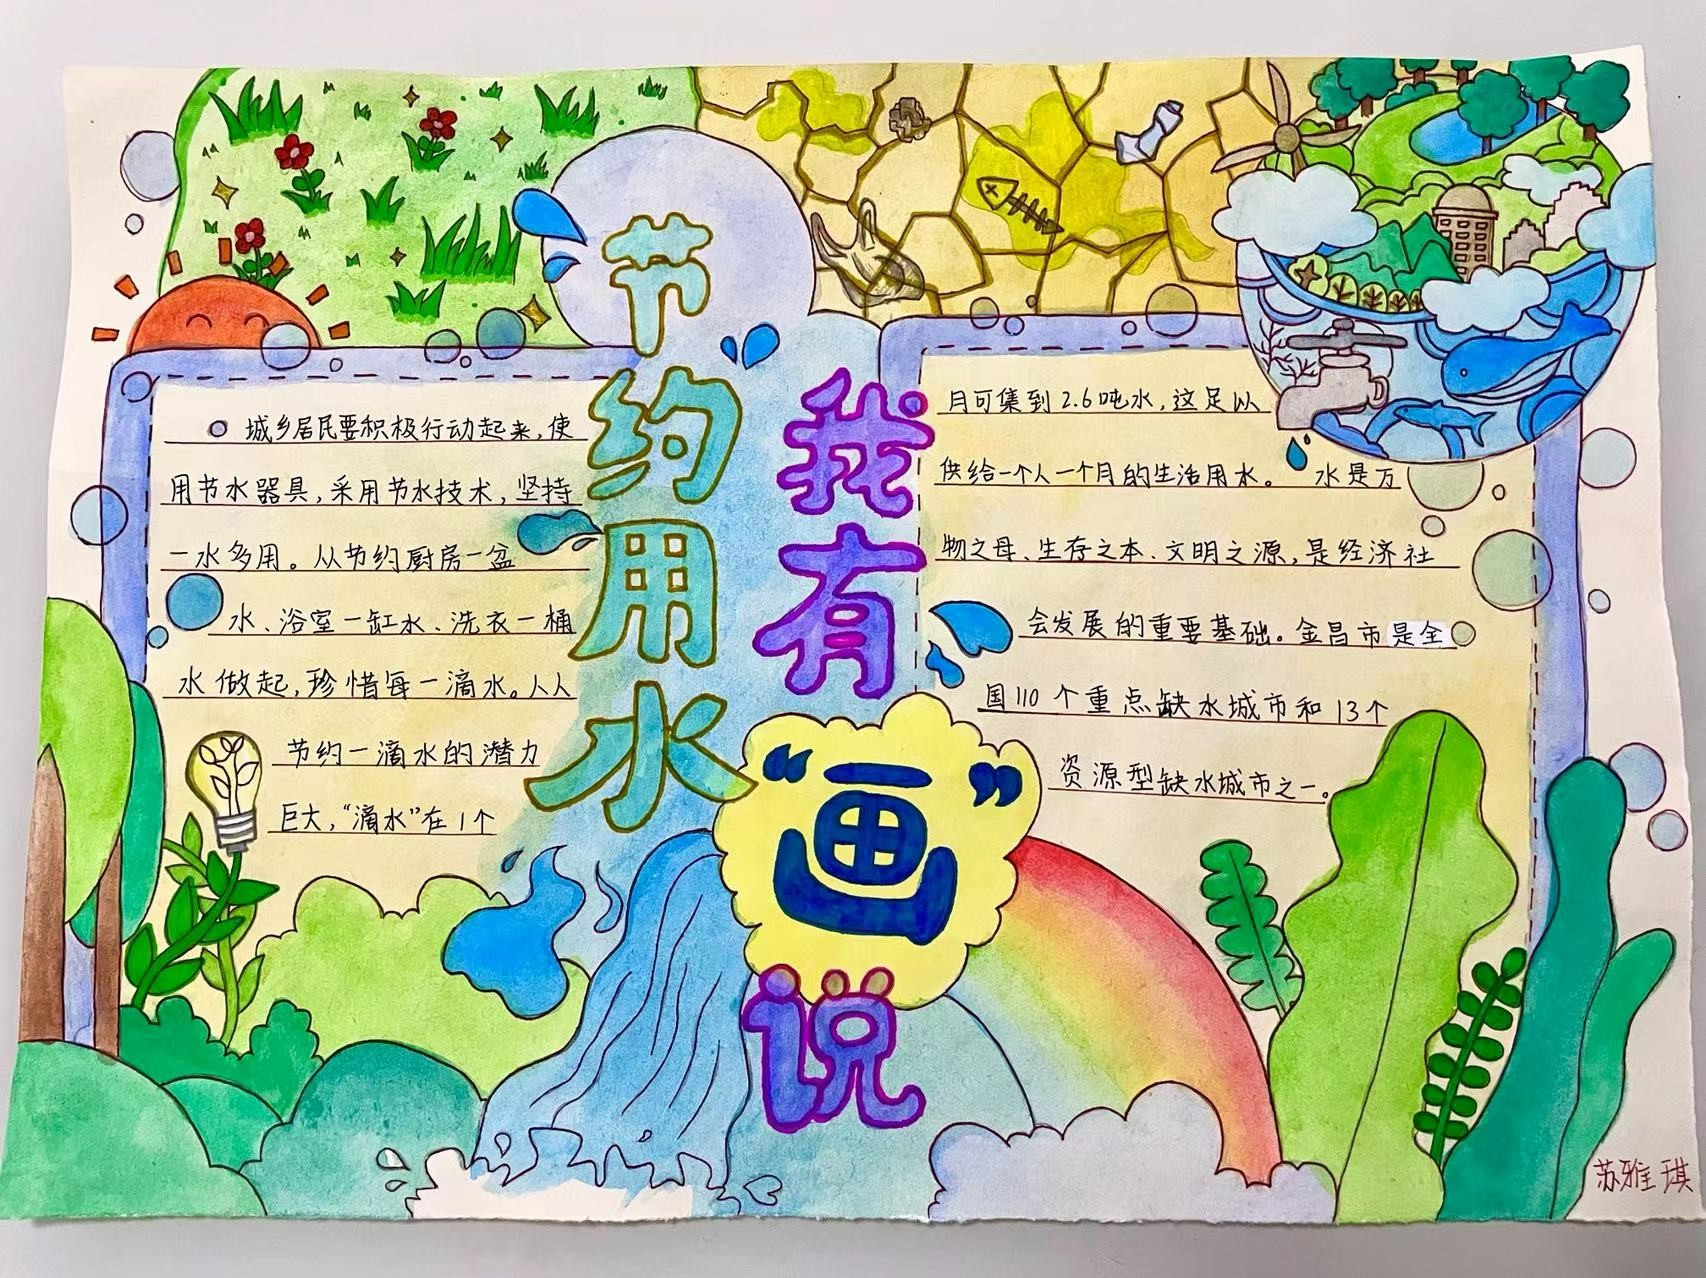 节约用水
我有
“画”
说
城乡居民要积极行动起来,使
用节水器具,采用节水技术,坚持
一水多用。从节约厨房一盆
水、浴室一缸水、洗衣一桶
水做起,珍惜每一滴水。人人
节约一滴水的潜力
巨大,“滴水”在1个
月可集到2.6吨水,这足以
供给一个人一个月的生活用水。 水是万
物之母、生存之本、文明之源,是经济社
会发展的重要基础。金昌市是全
国110个重点缺水城市和13个
资源型缺水城市之一。
苏雅琪